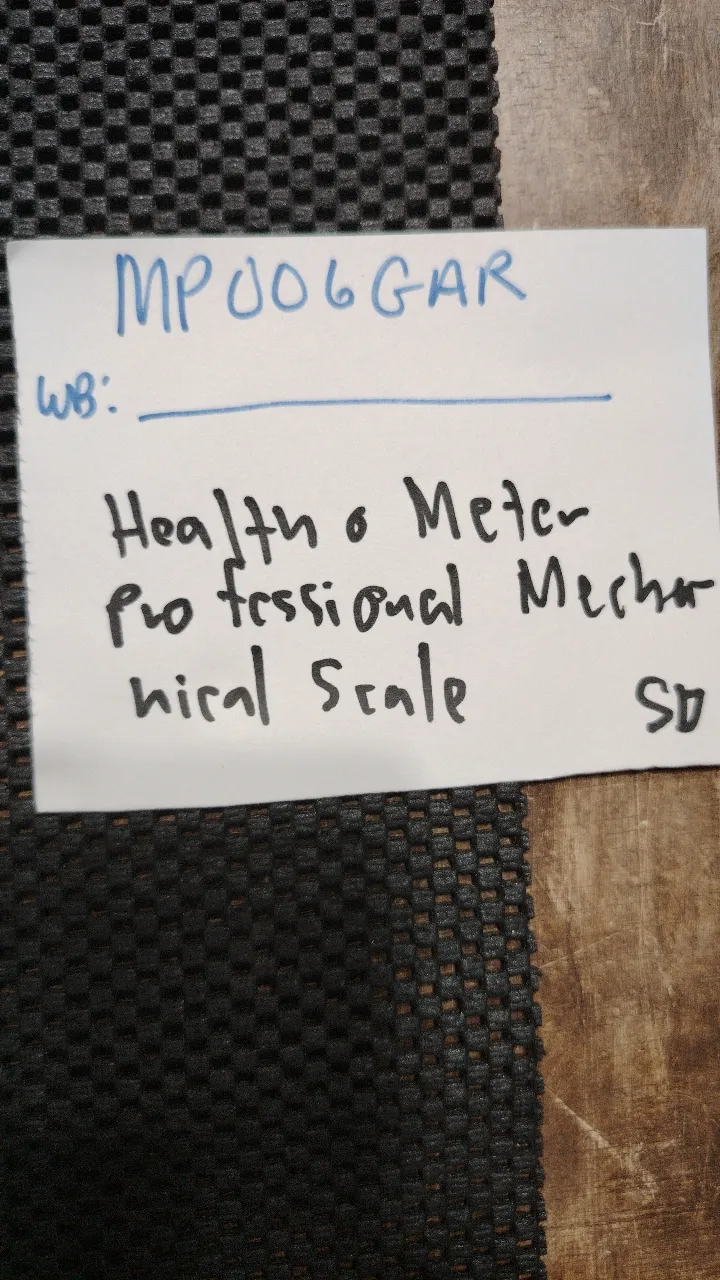 MP006GAR
WB:
Health o Meter
Professional Mecha
nical Scale
SD